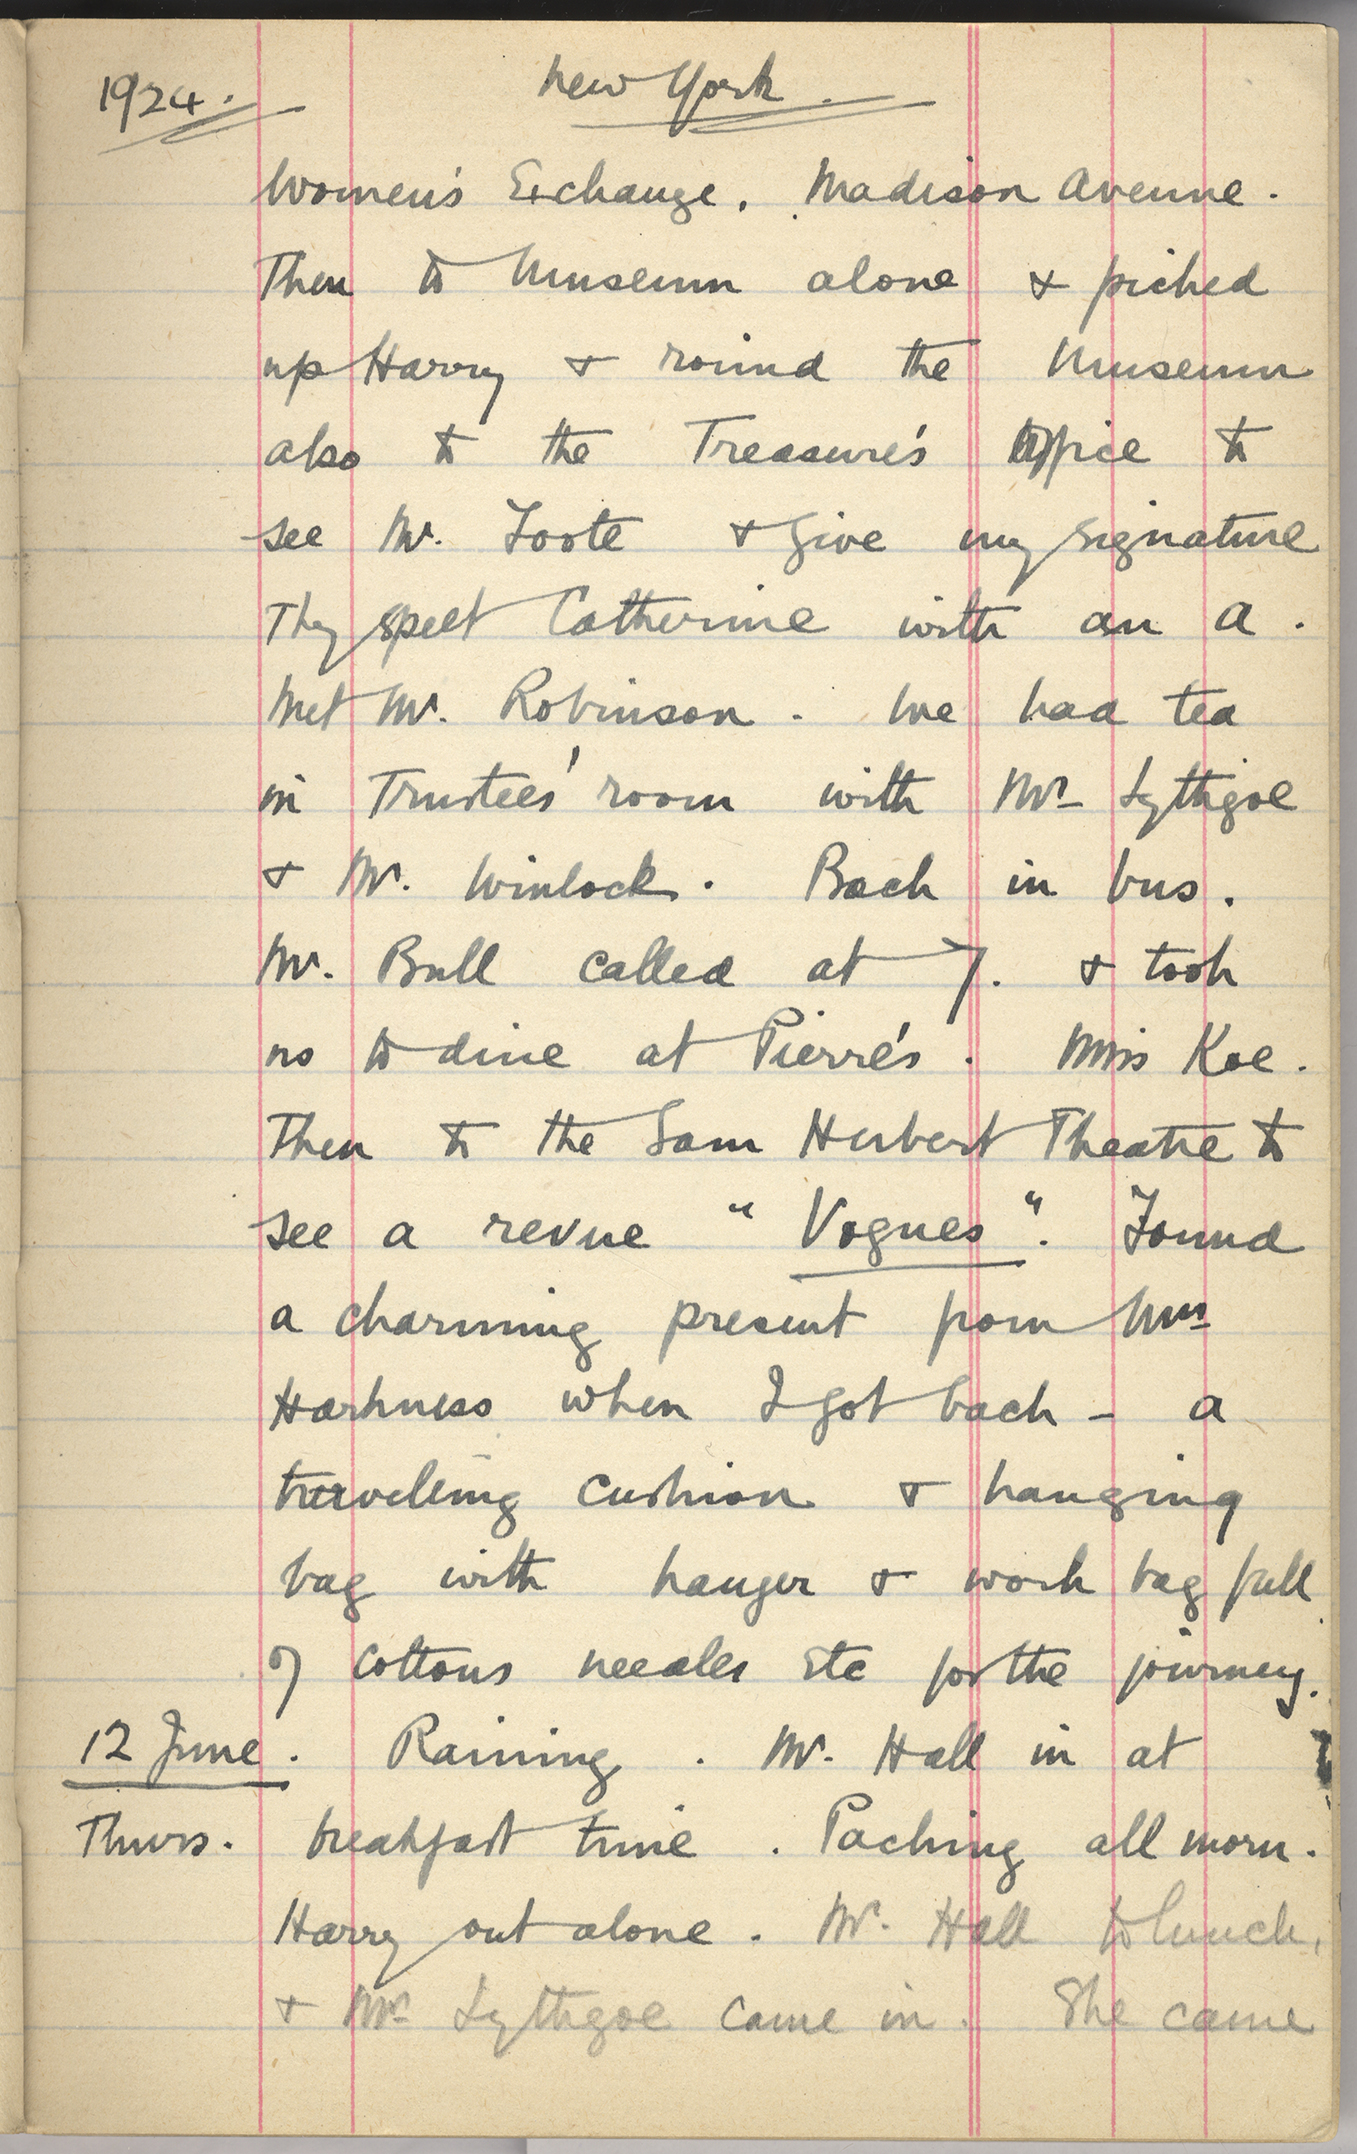 1924.
New York.
Women's Exchange. Madison Avenue.
Then to Museum alone & picked
up Harry & round the Museum
also to the Treasure's Office to
see Mr. Foote & give my signature
They spelt Catherine with an a.
Met Mr. Robinson. We had tea
in Trustees' room with Mrs Lythgoe
& Mr. Winlock. Back in bus.
Mr. Bull called at 7. & took
us to dine at Pierre's. Miss Koe.
Then to the Sam Herbert Theatre to
see a revue "Vogues". Found
a charming present from Mrs
Harkness when I got back - a
traveling cushion & hanging
bag with hanger & work bag full
of cottons needles etc for the journey.
12 June. Raining. Mr. Hall in at
Thurs. breakfast time. Packing all morn.
Harry out alone. Mr. Hall to lunch,
& Mrs Lythgoe came in. She came